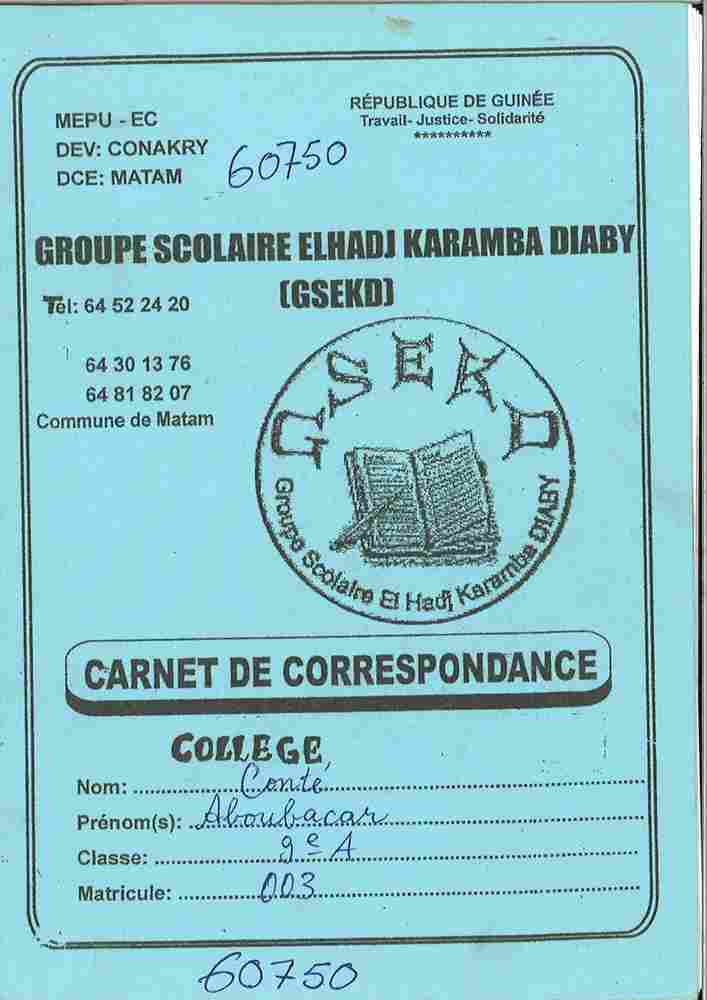 RÉPUBLIQUE DE GUINÉE
Travail- Justice- Solidarité
**********
MEPU - EC
DEV: CONAKRY
DCE: MATAM
60750
GROUPE SCOLAIRE ELHADJ KARAMBA DIABY
(GSEKD)
Tél: 64 52 24 20
64 30 13 76
64 81 82 07
Commune de Matam
GSEKD
Groupe Scolaire El Hadj Karamba DIABY
CARNET DE CORRESPONDANCE
COLLEGE
Nom: Conté
Prénom(s): Aboubacar
Classe: 9e A
Matricule: 003
60750